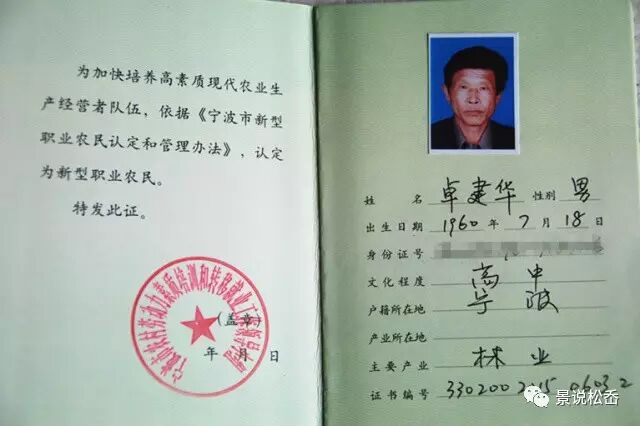 为加快培养高素质现代农业生
产经营者队伍，依据《宁波市新型
职业农民认定和管理办法》，认定
为新型职业农民。
特发此证。
（盖章）
年 月 日
姓 名 卓建华 性别 男
出生日期 1960 年 7 月 18 日
身份证号
文化程度 高中
户籍所在地 宁波
产业所在地
主要产业 林业
证书编号 330200 2 15 0603 2
景说松岙